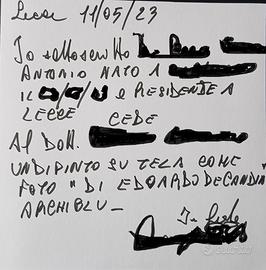 Lecce 11/05/23
Io sottoscritto De
ANTONIO NATO A
IL E RESIDENTE A
LECCE CEDE
Al Dott.
UN DIPINTO SU TELA COME
FOTO " DI EDOARDO DE CANDIA
ARCHIBLU_
In Fede